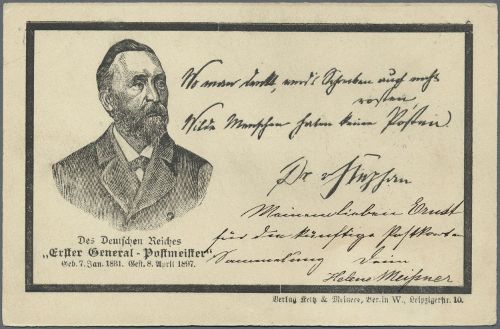 Wo man denkt, wird's Schreiben auch nicht
rosten,
Wilde Menschen haben keine Posten
Dr. v Stephan
Meinem lieben Ernst
für die künftige Postkarten
Sammlung Dein
Helene Meißner
Des Deutschen Reiches
„Erster General-Postmeister“
Geb. 7. Jan. 1831. Gest. 8. April 1897.
Verlag & Meiners, Berlin W., Leipzigerstr. 10.